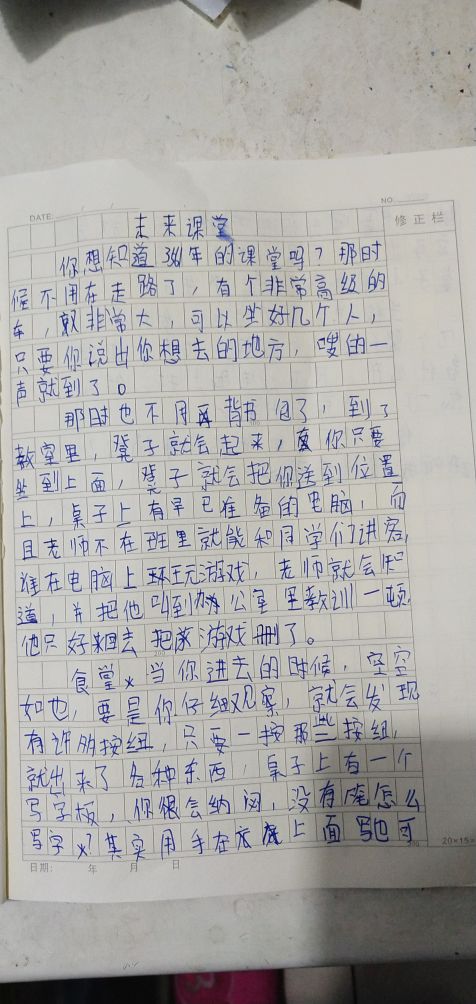 DATE: / /
NO.
修正栏
未来课堂
你想知道 年的课堂吗?那时
候不用在走路了,有个非常高级的
车,非常大,可以坐好几个人,
只要你说出你想去的地方,嗖的一
声就到了。
那时也不用再背书包了,到了
教室里,凳子就会起来,你只要
坐到上面,凳子就会把你送到位置
上,桌子上有早已准备的电脑,而
且老师不在班里就能和同学们讲客,
谁在电脑上玩游戏,老师就会知
道,并把他叫到办公室里教训一顿,
他只好来回去把游戏删了。
食堂,当你进去的时候,空空
如也,要是你仔细观察,就会发现
有许多按纽,只要一按那些按纽,
就出来了各种东西,桌子上有一个
写字板,你很会纳闷,没有笔怎么
写字?其实用手在上面写也可
300
20×15=
日期: 年 月 日